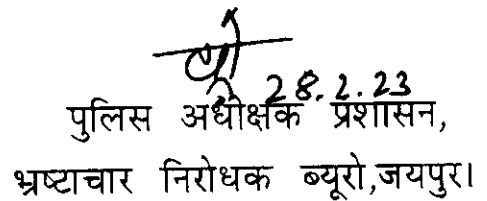 28.2.23
पुलिस अधीक्षक प्रशासन,
भ्रष्टाचार निरोधक ब्यूरो,जयपुर।